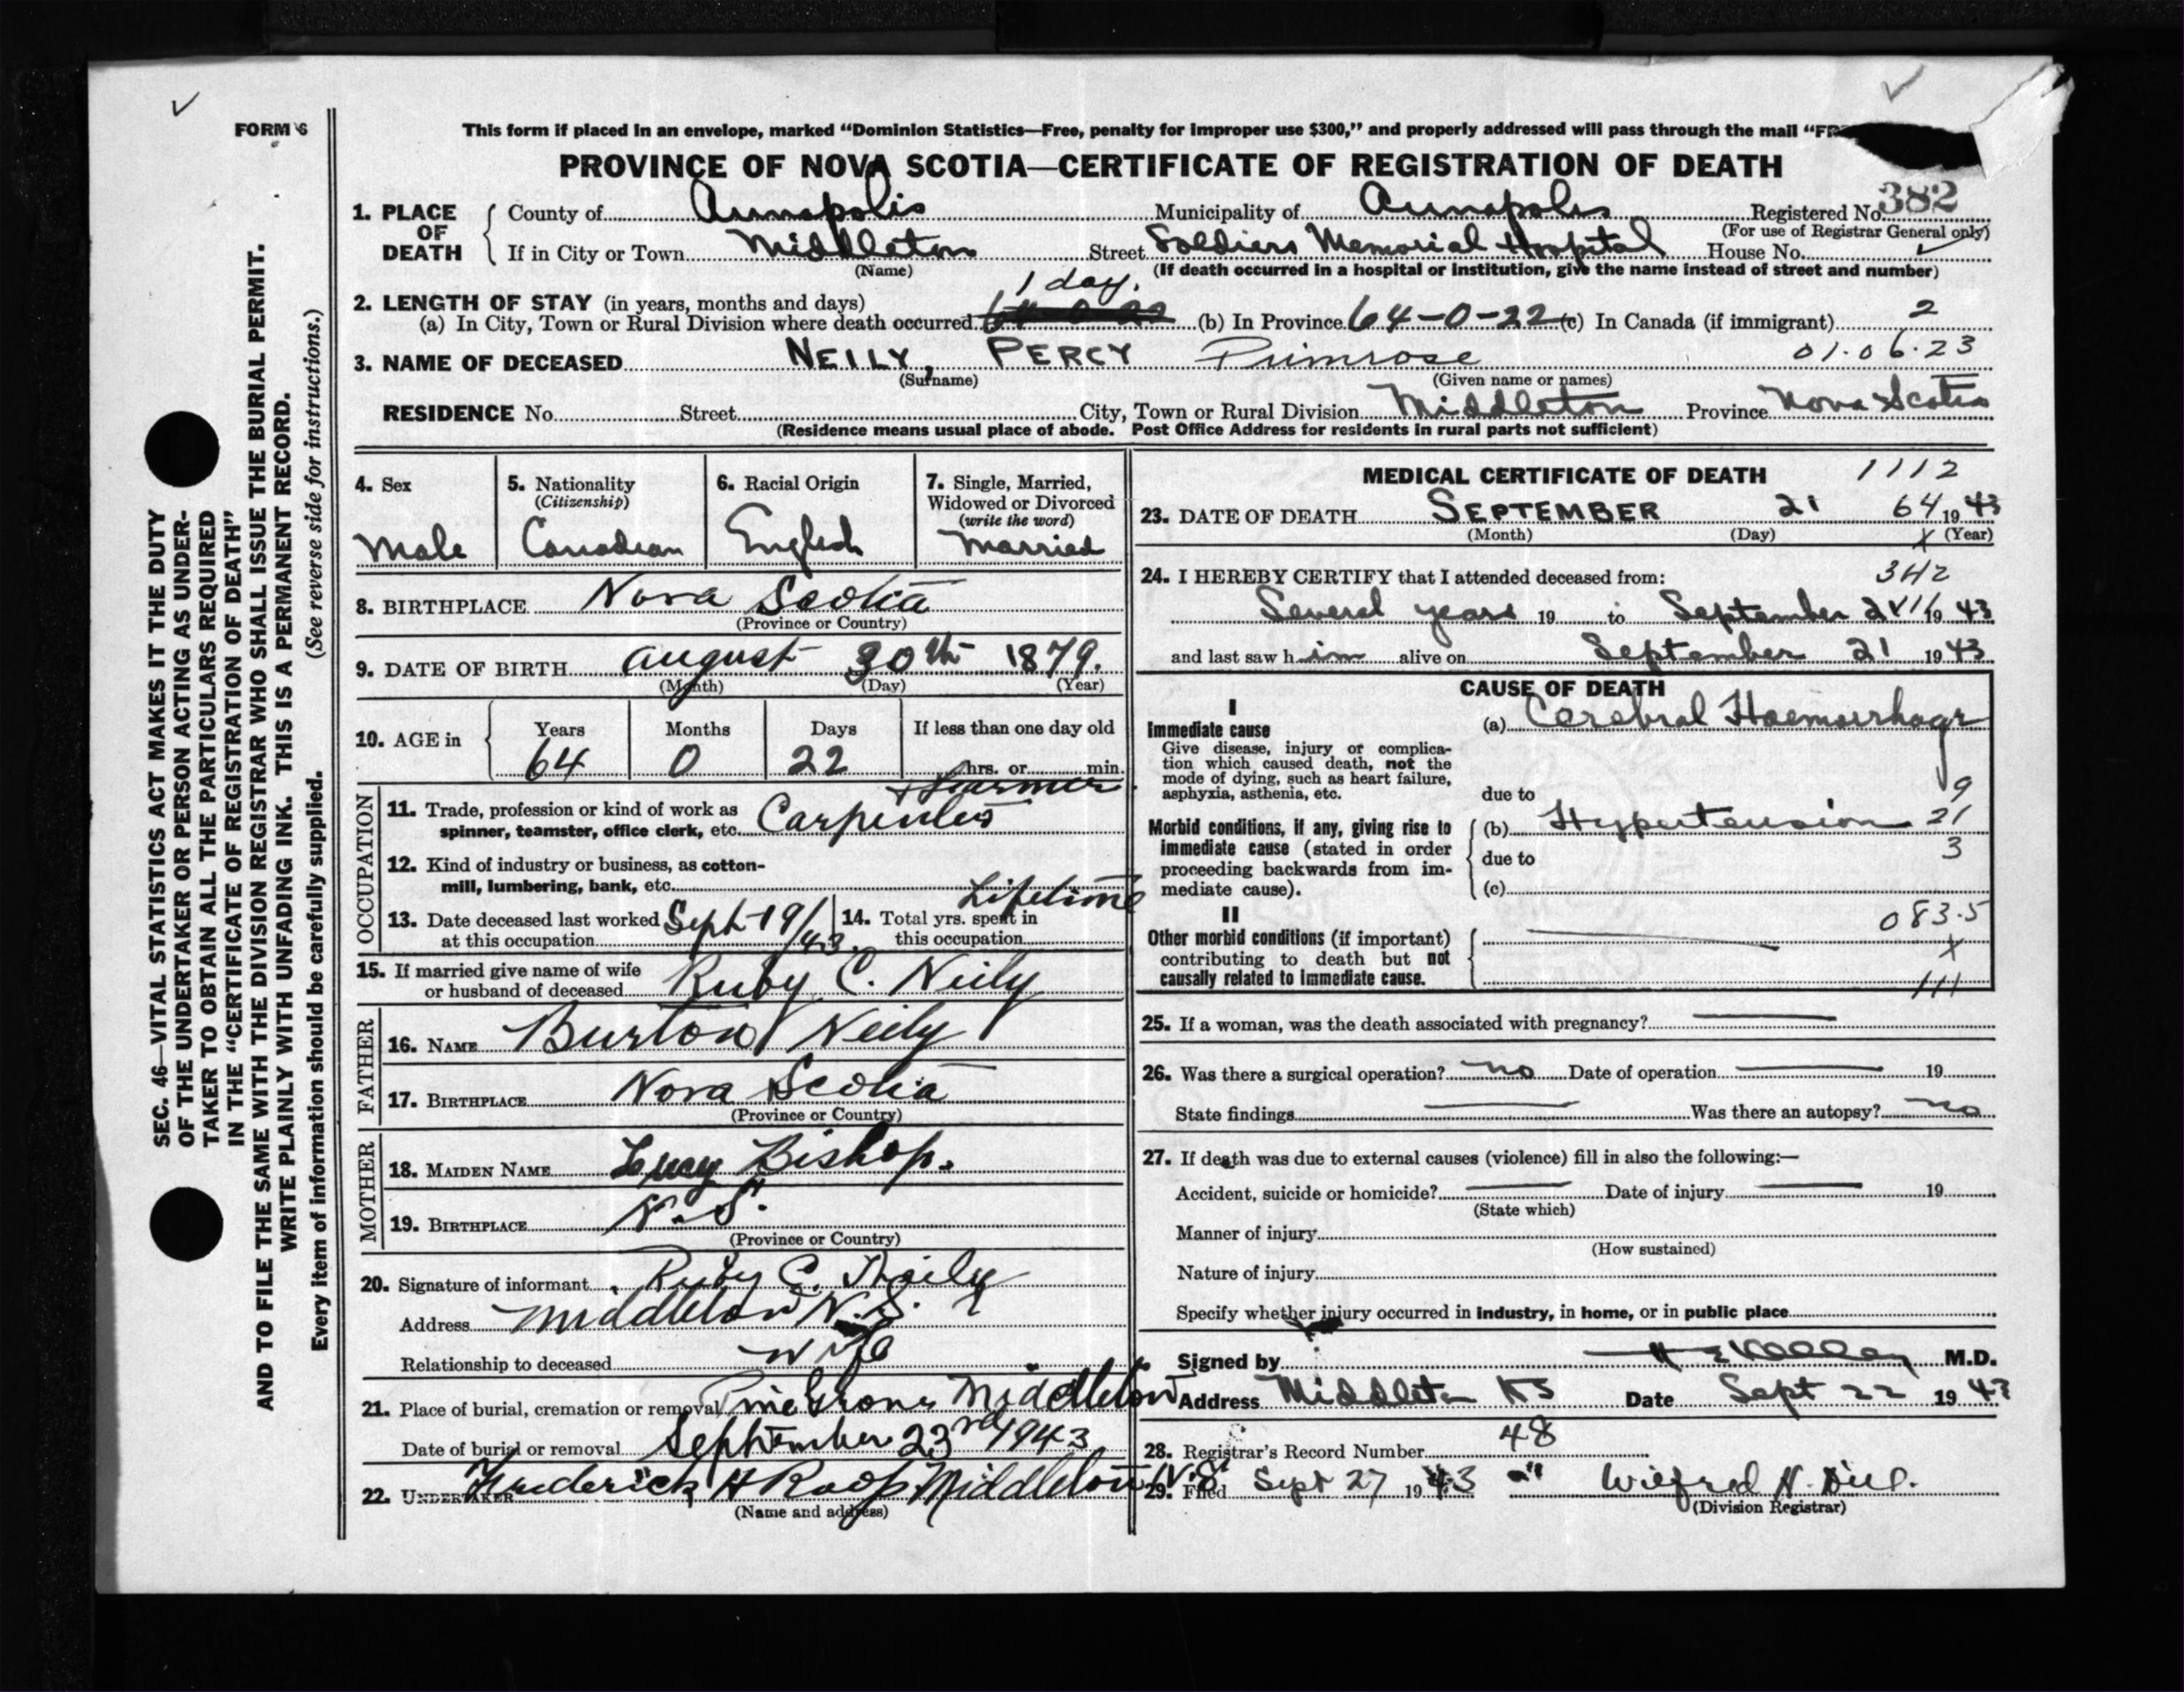 FORM 6
This form if placed in an envelope, marked “Dominion Statistics—Free, penalty for improper use $300,” and properly addressed will pass through the mail “FR
PROVINCE OF NOVA SCOTIA—CERTIFICATE OF REGISTRATION OF DEATH
382
1. PLACE OF DEATH
County of Annapolis Municipality of Annapolis Registered No.
(For use of Registrar General only)
If in City or Town Middleton Street Soldiers Memorial Hospital House No.
(Name) (If death occurred in a hospital or institution, give the name instead of street and number)
1 day.
2. LENGTH OF STAY (in years, months and days)
(a) In City, Town or Rural Division where death occurred 64-0-22 (b) In Province 64-0-22 (c) In Canada (if immigrant) 2
01.06.23
3. NAME OF DECEASED NEILY, PERCY Primrose
(Surname) (Given name or names)
RESIDENCE No. Street City, Town or Rural Division Middleton Province Nova Scotia
(Residence means usual place of abode. Post Office Address for residents in rural parts not sufficient)
4. Sex
Male
5. Nationality
(Citizenship)
Canadian
6. Racial Origin
English
7. Single, Married,
Widowed or Divorced
(write the word)
Married
8. BIRTHPLACE Nova Scotia
(Province or Country)
9. DATE OF BIRTH August 30th 1879.
(Month) (Day) (Year)
10. AGE in
Years Months Days If less than one day old
64 0 22 hrs. or min.
OCCUPATION
+ Farmer
11. Trade, profession or kind of work as
spinner, teamster, office clerk, etc. Carpenter
12. Kind of industry or business, as cotton-
mill, lumbering, bank, etc.
13. Date deceased last worked
at this occupation Sept 19/43.
14. Total yrs. spent in
this occupation Lifetime
15. If married give name of wife
or husband of deceased Ruby C. Neily
FATHER
16. NAME Burton Neily
17. BIRTHPLACE Nova Scotia
(Province or Country)
MOTHER
18. MAIDEN NAME Lucy Bishop.
19. BIRTHPLACE N.S.
(Province or Country)
20. Signature of informant Ruby C. Neily
Address Middleton N.S.
Relationship to deceased Wife
21. Place of burial, cremation or removal Pine Grove Middleton
Date of burial or removal September 23rd 1943
22. UNDERTAKER Frederick H Roop Middleton N.S.
(Name and address)
MEDICAL CERTIFICATE OF DEATH
1112
23. DATE OF DEATH SEPTEMBER 21 64 1943
(Month) (Day) (Year)
X
24. I HEREBY CERTIFY that I attended deceased from:
342
Several years 19 to September 21 1943
and last saw him alive on September 21 1943
CAUSE OF DEATH
I
Immediate cause
Give disease, injury or complica-
tion which caused death, not the
mode of dying, such as heart failure,
asphyxia, asthenia, etc.
(a) Cerebral Haemorrhage
due to 9
Morbid conditions, if any, giving rise to
immediate cause (stated in order
proceeding backwards from im-
mediate cause).
(b) Hypertension 21
due to 3
(c)
II
Other morbid conditions (if important)
contributing to death but not
causally related to immediate cause.
083.5
X
111
25. If a woman, was the death associated with pregnancy?
26. Was there a surgical operation? no Date of operation 19
State findings Was there an autopsy? no
27. If death was due to external causes (violence) fill in also the following:—
Accident, suicide or homicide? Date of injury 19
(State which)
Manner of injury
(How sustained)
Nature of injury
Specify whether injury occurred in industry, in home, or in public place
Signed by M.D.
Address Middleton NS Date Sept 22 1943
28. Registrar's Record Number 48
29. Filed Sept 27 1943 Wilfred N.
(Division Registrar)
SEC. 46—VITAL STATISTICS ACT MAKES IT THE DUTY
OF THE UNDERTAKER OR PERSON ACTING AS UNDER-
TAKER TO OBTAIN ALL THE PARTICULARS REQUIRED
IN THE “CERTIFICATE OF REGISTRATION OF DEATH”
AND TO FILE THE SAME WITH THE DIVISION REGISTRAR WHO SHALL ISSUE THE BURIAL PERMIT.
WRITE PLAINLY WITH UNFADING INK. THIS IS A PERMANENT RECORD.
Every item of information should be carefully supplied. (See reverse side for instructions.)